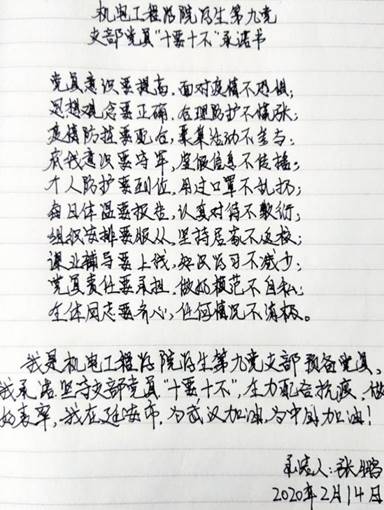 机电工程学院学生第九党
支部党员“十要十不”承诺书
党员意识要提高，面对疫情不恐惧；
思想观念要正确，合理防护不慌张；
疫情防控要配合，聚集活动不参与；
自我意识要牢，虚假信息不传播；
个人防护要到位，用过口罩不乱扔；
每日体温要报告，认真对待不敷衍；
组织安排要服从，坚持居家不返校；
课业辅导要上线，知识学习不减少；
党员责任要承担，做好模范不自私；
全体同志要齐心，任何情况不消极。
我是机电工程学院学生第九党支部预备党员，
我承诺坚守支部党员“十要十不”，全力配合抗疫，做
好表率，我在延安市，为武汉加油，为中国加油！
承诺人：张鹏
2020年2月14日